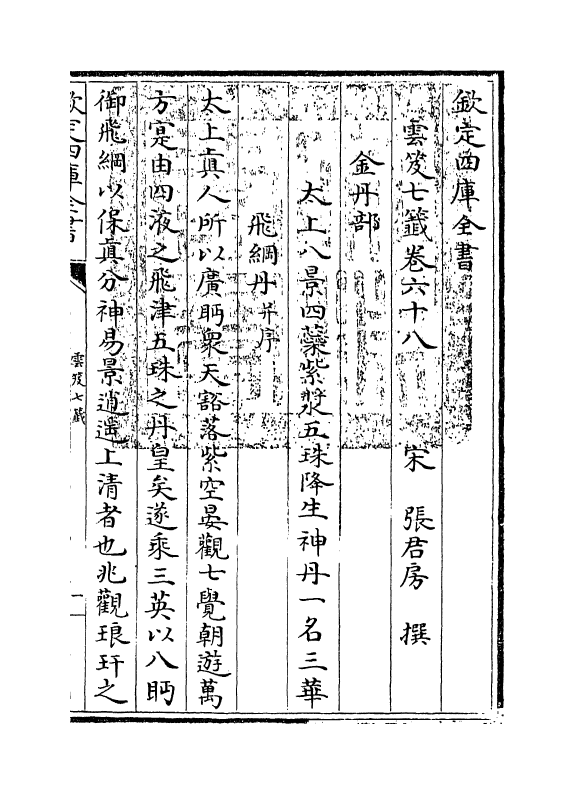 欽定四庫全書
雲笈七籤卷六十八　宋　張君房　撰
金丹部
太上八景四蘂紫漿五珠降生神丹一名三華
飛綱丹并序
太上真人所以廣眄衆天豁落紫空晏觀七覺朝遊萬
方寔由四液之飛津五珠之丹皇矣遂乘三英以八眄
御飛綱以保真分神易景逍遥上清者也兆觀琅玕之
欽定四庫全書
雲笈七籤
一